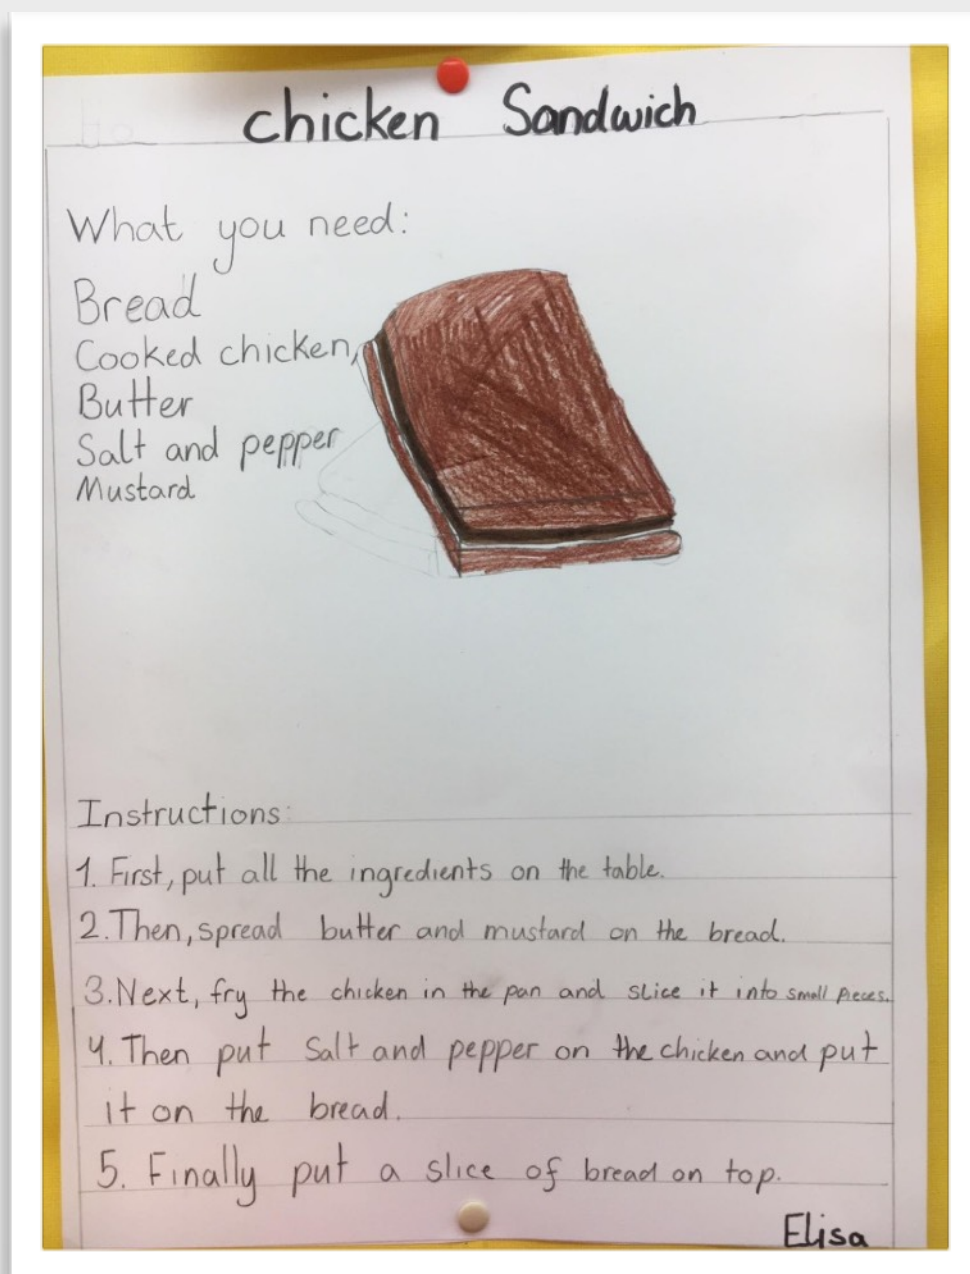 chicken Sandwich
What you need:
Bread
Cooked chicken,
Butter
Salt and pepper
Mustard
Instructions:
1. First, put all the ingredients on the table.
2. Then, spread butter and mustard on the bread.
3. Next, fry the chicken in the pan and slice it into small pieces.
4. Then put Salt and pepper on the chicken and put
it on the bread.
5. Finally put a slice of bread on top.
Elisa